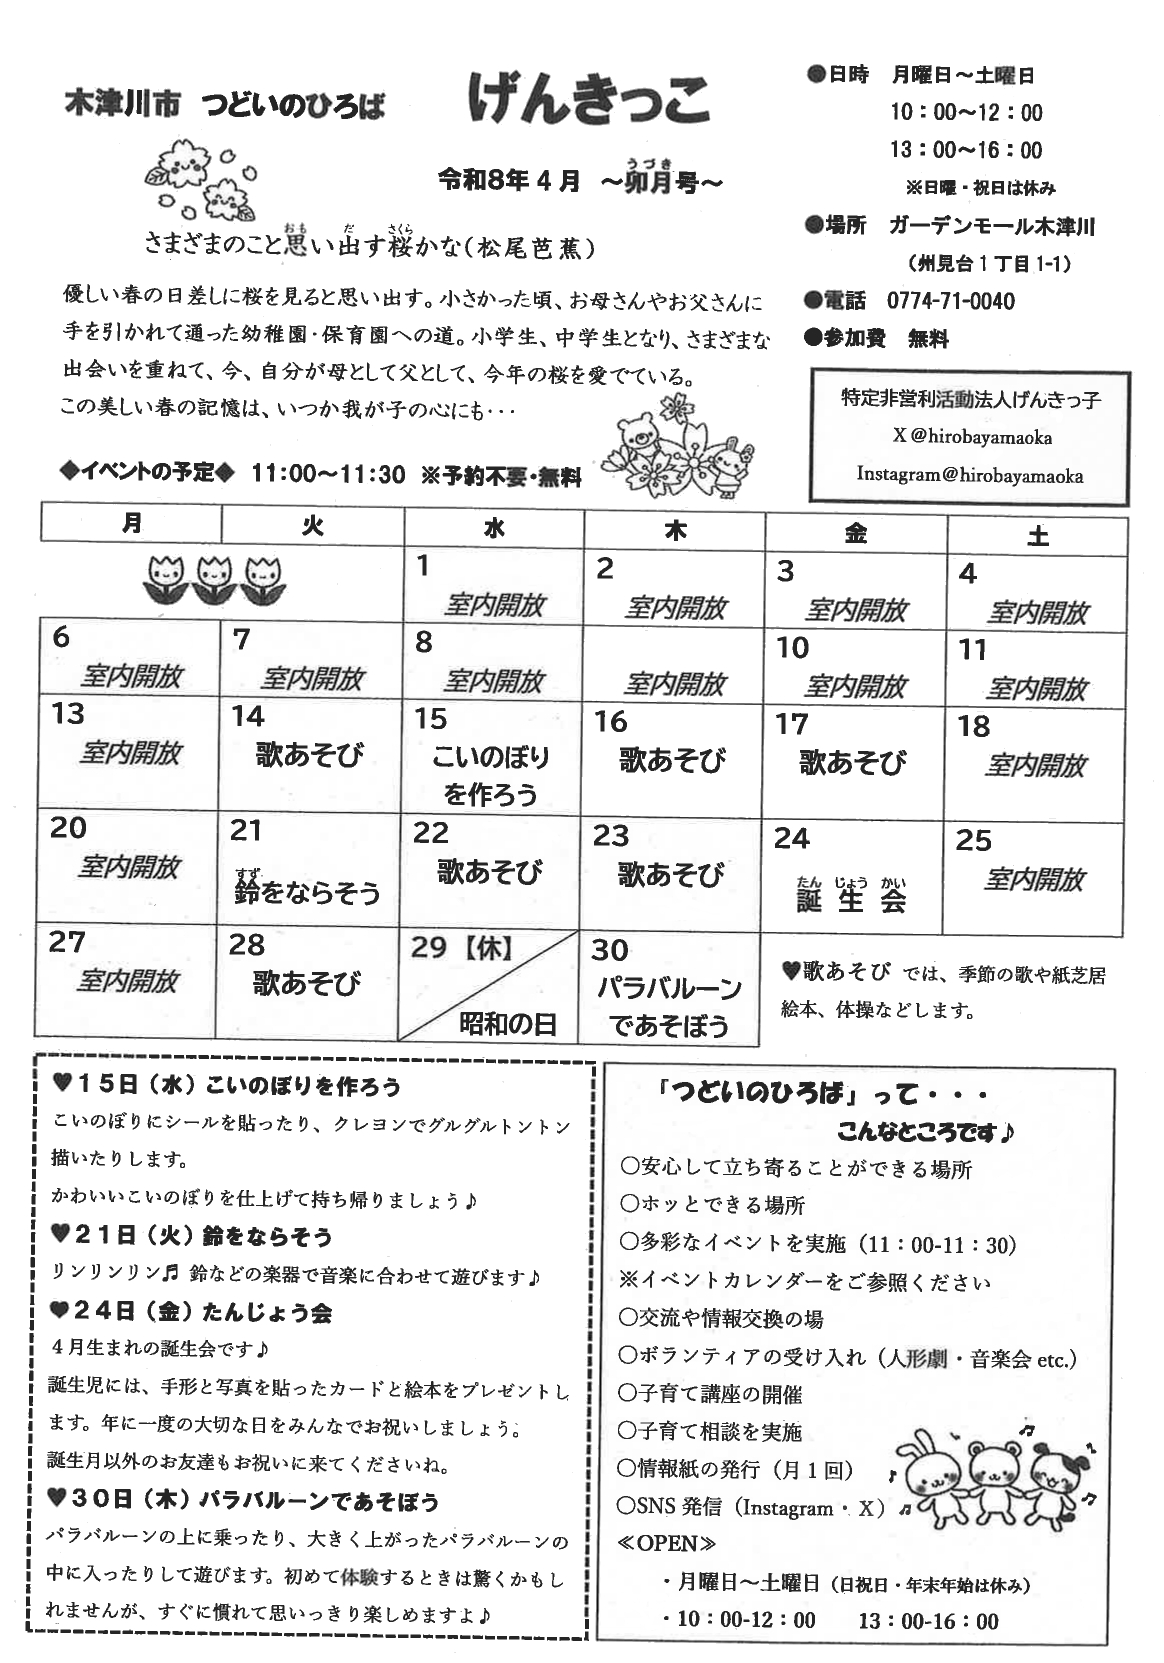 木津川市 つどいのひろば
げんきっこ
令和8年4月 ～卯月号～
うづき
さまざまのこと思い出す桜かな（松尾芭蕉）
おも だ さくら
優しい春の日差しに桜を見ると思い出す。小さかった頃、お母さんやお父さんに
手を引かれて通った幼稚園・保育園への道。小学生、中学生となり、さまざまな
出会いを重ねて、今、自分が母として父として、今年の桜を愛でている。
この美しい春の記憶は、いつか我が子の心にも・・・
●日時 月曜日～土曜日
10：00～12：00
13：00～16：00
※日曜・祝日は休み
●場所 ガーデンモール木津川
（州見台1丁目1-1）
●電話 0774-71-0040
●参加費 無料
特定非営利活動法人げんきっ子
X＠hirobayamaoka
Instagram＠hirobayamaoka
◆イベントの予定◆ 11:00～11:30 ※予約不要・無料
月 火 水 木 金 土
1 2 3 4
室内開放 室内開放 室内開放 室内開放
6 7 8 10 11
室内開放 室内開放 室内開放 室内開放 室内開放 室内開放
13 14 15 16 17 18
室内開放 歌あそび こいのぼり 歌あそび 歌あそび 室内開放
を作ろう
20 21 22 23 24 25
室内開放 鈴をならそう 歌あそび 歌あそび 誕生会 室内開放
すず たん じょう かい
27 28 29【休】 30
室内開放 歌あそび 昭和の日 パラバルーン
であそぼう
♥歌あそび では、季節の歌や紙芝居
絵本、体操などします。
♥15日（水）こいのぼりを作ろう
こいのぼりにシールを貼ったり、クレヨンでグルグルトントン
描いたりします。
かわいいこいのぼりを仕上げて持ち帰りましょう♪
♥21日（火）鈴をならそう
リンリンリン♬ 鈴などの楽器で音楽に合わせて遊びます♪
♥24日（金）たんじょう会
４月生まれの誕生会です♪
誕生児には、手形と写真を貼ったカードと絵本をプレゼントし
ます。年に一度の大切な日をみんなでお祝いしましょう。
誕生月以外のお友達もお祝いに来てくださいね。
♥30日（木）パラバルーンであそぼう
パラバルーンの上に乗ったり、大きく上がったパラバルーンの
中に入ったりして遊びます。初めて体験するときは驚くかもし
れませんが、すぐに慣れて思いっきり楽しめますよ♪
「つどいのひろば」って・・・
こんなところです♪
○安心して立ち寄ることができる場所
○ホッとできる場所
○多彩なイベントを実施（11：00-11：30）
※イベントカレンダーをご参照ください
○交流や情報交換の場
○ボランティアの受け入れ（人形劇・音楽会 etc.）
○子育て講座の開催
○子育て相談を実施
○情報紙の発行（月1回）
○SNS 発信（Instagram・X）
≪OPEN≫
・月曜日～土曜日（日祝日・年末年始は休み）
・10：00-12：00 13：00-16：00